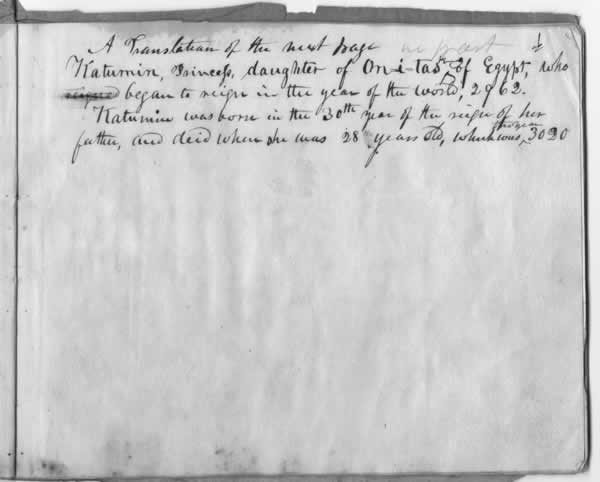 A Translation of the next page in part
Katumin, Princess, daughter of On-i-tas of Egypt, who
reigned began to reign in the year of the world, 2962.
Katumin was born in the 30th year of the reign of her
father, and deid when she was 28 years old, which was, 3020